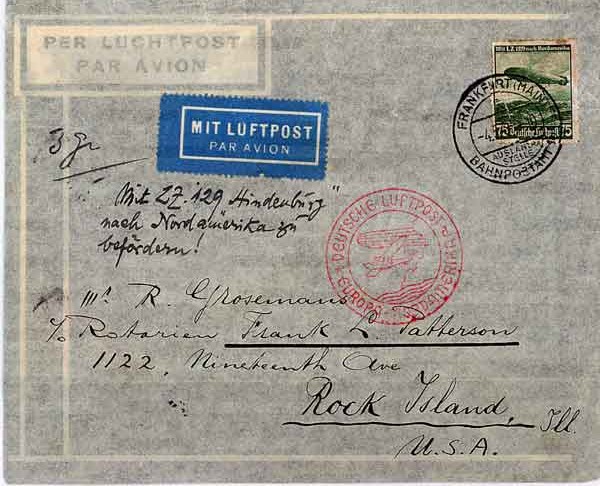 PER LUCHTPOST
PAR AVION
Mit L.Z. 129 nach Nordamerika
75 Deutsche Luftpost 75
FRANKFURT (MAIN)
AUSLANDS-
STELLE
BAHNPOSTAMT
3 gr
MIT LUFTPOST
PAR AVION
"Mit LZ. 129 Hindenburg"
nach Nordamerika zu
befördern!
DEUTSCHE LUFTPOST
EUROPA - NORDAMERIKA
Mr R. Grosemans
c/o Rotarien Frank L. Patterson
1122, Nineteenth Ave
Rock Island, Ill.
U.S.A.